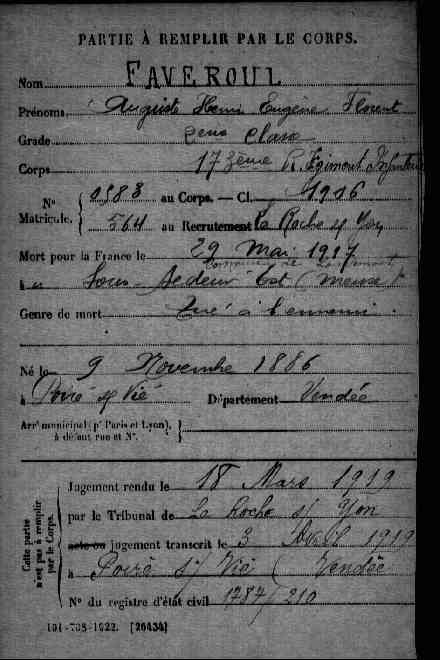 PARTIE À REMPLIR PAR LE CORPS.
Nom FAVEROUL
Prénoms Auguste Henri Eugène Florent
Grade 2eme Classe
Corps 173eme Régiment Infanterie
N° Matricule. { 1983 au Corps. — Cl. 1916
564 au Recrutement La Roche s/ Yon
Mort pour la France le 29 Mai 1917
à Sous-Secteur Est (Meuse)
Genre de mort Tué à l'ennemi
Né le 9 Novembre 1886
à Poiré s/ Vie Département Vendée
Arrt municipal (pr Paris et Lyon), à défaut rue et N°.
Cette partie n'est pas à remplir par le Corps.
Jugement rendu le 18 Mars 1919
par le Tribunal de La Roche s/ Yon
acte ou jugement transcrit le 3 Avril 1919
à Poiré s/ Vie (Vendée
N° du registre d'état civil 1787/210
101-708-1922. [26434]